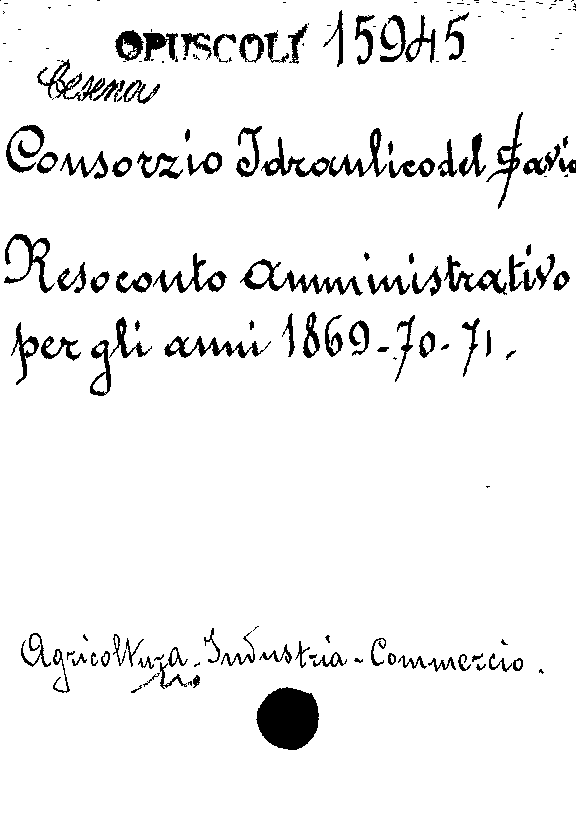 OPUSCOLI 15945
Cesena
Consorzio Idraulico del Savio
Resoconto amministrativo
per gli anni 1869-70-71.
Agricoltura-Industria-Commercio.